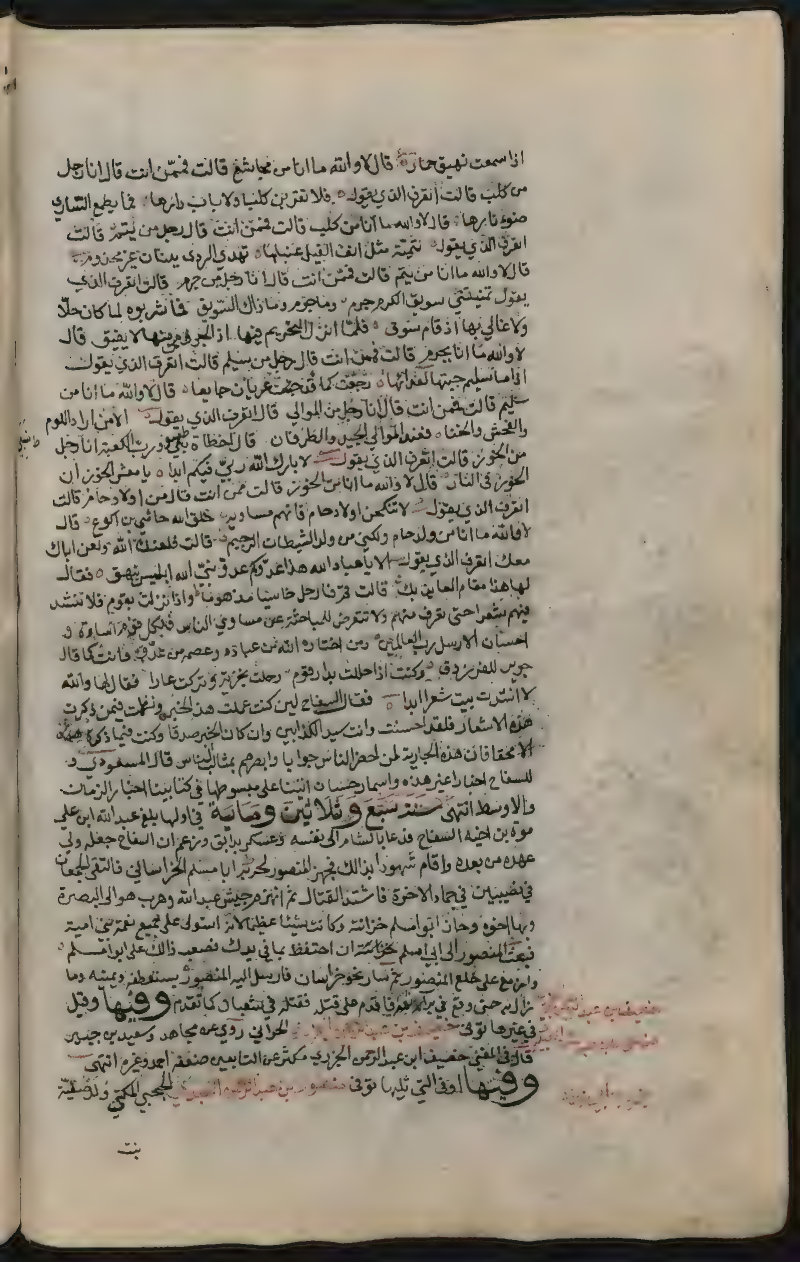 اذا سمعت نهيق حمار قال لا والله ما انا من مجاشع قالت فممن انت قال انا رجل
من كلب قالت اتعرف الذي يقول فلا تقربن كلبا ولا باب دارها فما يطمع الساري
ضوء نارها قال لا والله ما انا من كلب قالت فممن انت قال رجل من تيم قالت
اتعرف الذي يقول تيمية مثل انف الفيل عنبلها تهدي الردى ببنان غير مخدوم
قال لا والله ما انا من تيم قالت فممن انت قال انا رجل من جرم قالت اتعرف الذي
يقول تمنيني سويق الكرم جرم وما جرم وما ذاك السويق فما شربوه لما كان حلا
ولا غالى بها اذ قام سوق فلما انزل التحريم فيها اذ الجرمي منها لا يفيق قال
لا والله ما انا بجرم قالت فممن انت قال رجل من سليم قالت اتعرف الذي يقول
اذا ما سليم جيتها لغدائها رجعت كما قد جيت غرثان جايعا قال لا والله ما انا من
سليم قالت فممن انت قال انا رجل من الموالي قالت اتعرف الذي يقول الا من اراد اللوم
والفحش والخنا فعند الموالي الجيد والطرفان قال اخطاة ورب الكعبة انا رجل
من الخوز قالت اتعرف الذي يقول لا بارك الله ربي فيكم ابدا يا معشر الخوز ان
الخوز في النار قال لا والله ما انا من الخوز قالت ممن انت قال من اولاد حام قالت
اتعرف الذي يقول لا تنكحن اولاد حام فانهم مساويد خلق الله حاشى بن اكوع قال
لا والله ما انا من ولد حام ولكني من ولد الشيطان الرجيم قالت فلعنك الله ولعن اباك
معك اتعرف الذي يقول الا يا عباد الله هذا عدوكم عدو نبي الله ابليس ينهق فقال
لها هذا مقام العايذ بك قالت قم فارحل خاسيا مذموما واذا نزلت بقوم فلا تنشد
فيهم شعرا حتى تعرف منهم ولا تتعرض للمباحثة عن مساوي الناس فلكل قوم اساءة و
احسان الا رسل رب العالمين ومن اختاره الله من عباده وعصمه من عدوه فانت كما قال
جرير للفرزدق وكنت اذا حللت بدار قوم رحلت بخزية وتركت عارا فقال لها والله
لا انشدت بيت شعر ابدا فقال السفاح لين كنت عملت هذا الخبر ونظمت فيمن ذكرت
هذه الاشعار فلقد احسنت وانت سيد الكذابين وان كان الخبر صدقا وكنت فيما ذكرته محقا
فان هذه الجارية لمن احضر الناس جوابا وابصرهم بمثالب الناس قال المسعودي و
للسفاح اخبار غير هذه واسمار حسان اتينا على مبسوطها في كتابينا اخبار الزمان
والاوسط انتهى سنة سبع وثلاثين وماية في اولها بلغ عبد الله ابن علي
موة بن اخيه السفاح فدعا بالشام الى نفسه وعسكر بدابق وزعم ان السفاح جعله ولي
عهده من بعده واقام شهودا بذالك فجهز المنصور لحربه ابا مسلم الخراساني فالتقى الجمعان
في نصيبين في جماد الاخرة فاشتد القتال ثم انهزم جيش عبد الله وهرب هو الى البصرة
وبها اخوه وحاز ابو مسلم خزائنه وكانت شيئا عظيما لانه استولى على جميع نعمة بني امية
فبعث المنصور الى ابي مسلم ان احتفظ بما في يدك فصعب ذالك على ابو مسلم
وازمع على خلع المنصور ثم سار نحو خراسان فارسل اليه المنصور يستعطفه ويمنيه وما
زال به حتى وقع في براثنه فاقدم على قتله فقتله في شعبان كما تقدم وفيها وقيل
في غيرها توفى خصيف بن عبد الرحمن الجزري الحراني روى عن مجاهد وسعيد بن جبير
قال في المغني خصيف ابن عبد الرحمن الجزري مكثر عن التابعين ضعفه احمد وغيره انتهى
وفيها او في التي تليها توفى منصور بن عبد الرحمن العبدري الحجبي المكي ولد صفية
بنت